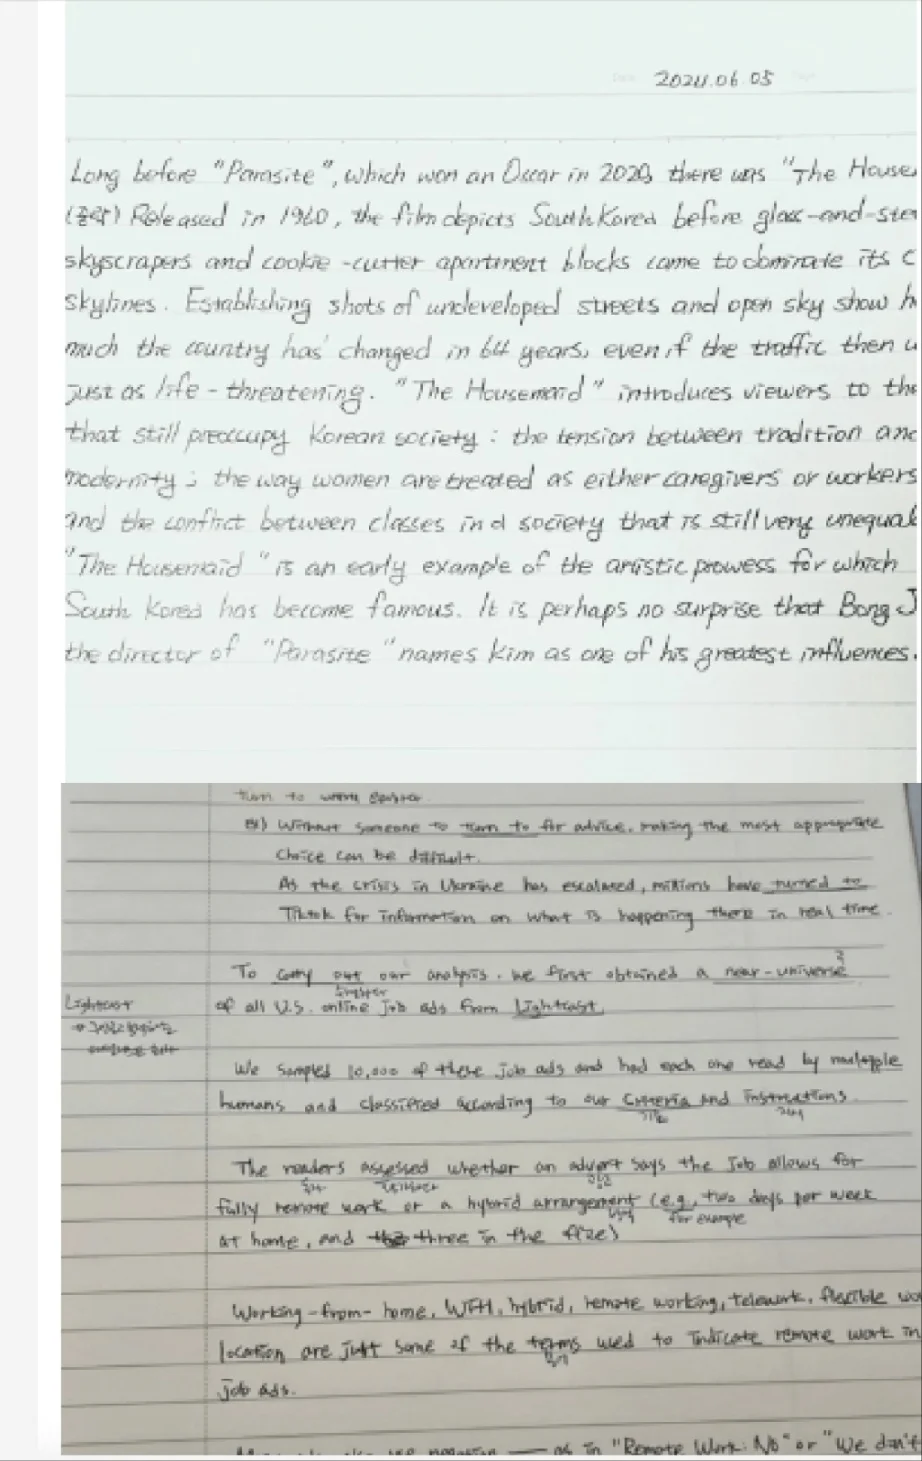 2024.06.05
Long before "Parasite", which won an Oscar in 2020, there was "The House
Released in 1960, the film depicts South Korea before glass-and-stee
skyscrapers and cookie-cutter apartment blocks came to dominate its c
skylines. Establishing shots of undeveloped streets and open sky show h
much the country has changed in 64 years, even if the traffic then w
just as life-threatening. "The Housemaid" introduces viewers to the
that still preoccupy Korean society: the tension between tradition and
modernity; the way women are treated as either caregivers or workers
and the conflict between classes in a society that is still very unequal
"The Housemaid" is an early example of the artistic prowess for which
South Korea has become famous. It is perhaps no surprise that Bong J
the director of "Parasite" names Kim as one of his greatest influences.
turn to
Without someone to turn to for advice, making the most appropriate
choice can be difficult.
As the crisis in Ukraine has escalated, millions have turned to
Tiktok for information on what is happening there in real time.
To carry out our analysis, we first obtained a near-universe
Lightcast
of all U.S. online job ads from Lightcast.
We sampled 10,000 of these job ads and had each one read by multiple
humans and classified according to our criteria and instructions.
The readers assessed whether an advert says the job allows for
fully remote work or a hybrid arrangement (e.g., two days per week
for example
at home, and three in the
Working-from-home, WFH, hybrid, remote working, telework, flexible wo
location are just some of the terms used to indicate remote work in
job ads.
as in "Remote Work: No" or "We don't